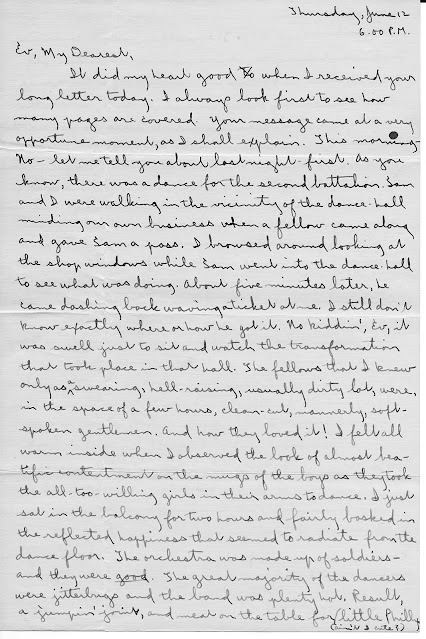 Thursday, June 12
6:00 P.M.
Ev, My Dearest,
It did my heart good when I received your
long letter today. I always look first to see how
many pages are covered. Your message came at a very
opportune moment, as I shall explain. This morning-
No - let me tell you about last night first. As you
know, there was a dance for the second battalion. Sam
and I were walking in the vicinity of the dance-hall
minding our own business when a fellow came along
and gave Sam a pass. I browsed around looking at
the shop windows while Sam went into the dance-hall
to see what was doing. About five minutes later, he
came dashing back waving a ticket at me. I still don't
know exactly where or how he got it. No kiddin', Ev, it
was swell just to sit and watch the transformation
that took place in that hall. The fellows that I knew
only as a swearing, hell-raising, usually dirty lot, were,
in the space of a few hours, clean-cut, mannerly, soft-
spoken gentlemen. And how they loved it! I felt all
warm inside when I observed the look of almost bea-
tific contentment on the mugs of the boys as they took
the all-too-willing girls in their arms to dance. I just
sat in the balcony for two hours and fairly basked in
the reflected happiness that seemed to radiate from the
dance floor. The orchestra was made up of soldiers-
and they were good. The great majority of the dancers
were jitterbugs and the band was plenty hot. Result,
a jumpin' joint, and meat on the table for little Philly
(ain't I cute?)